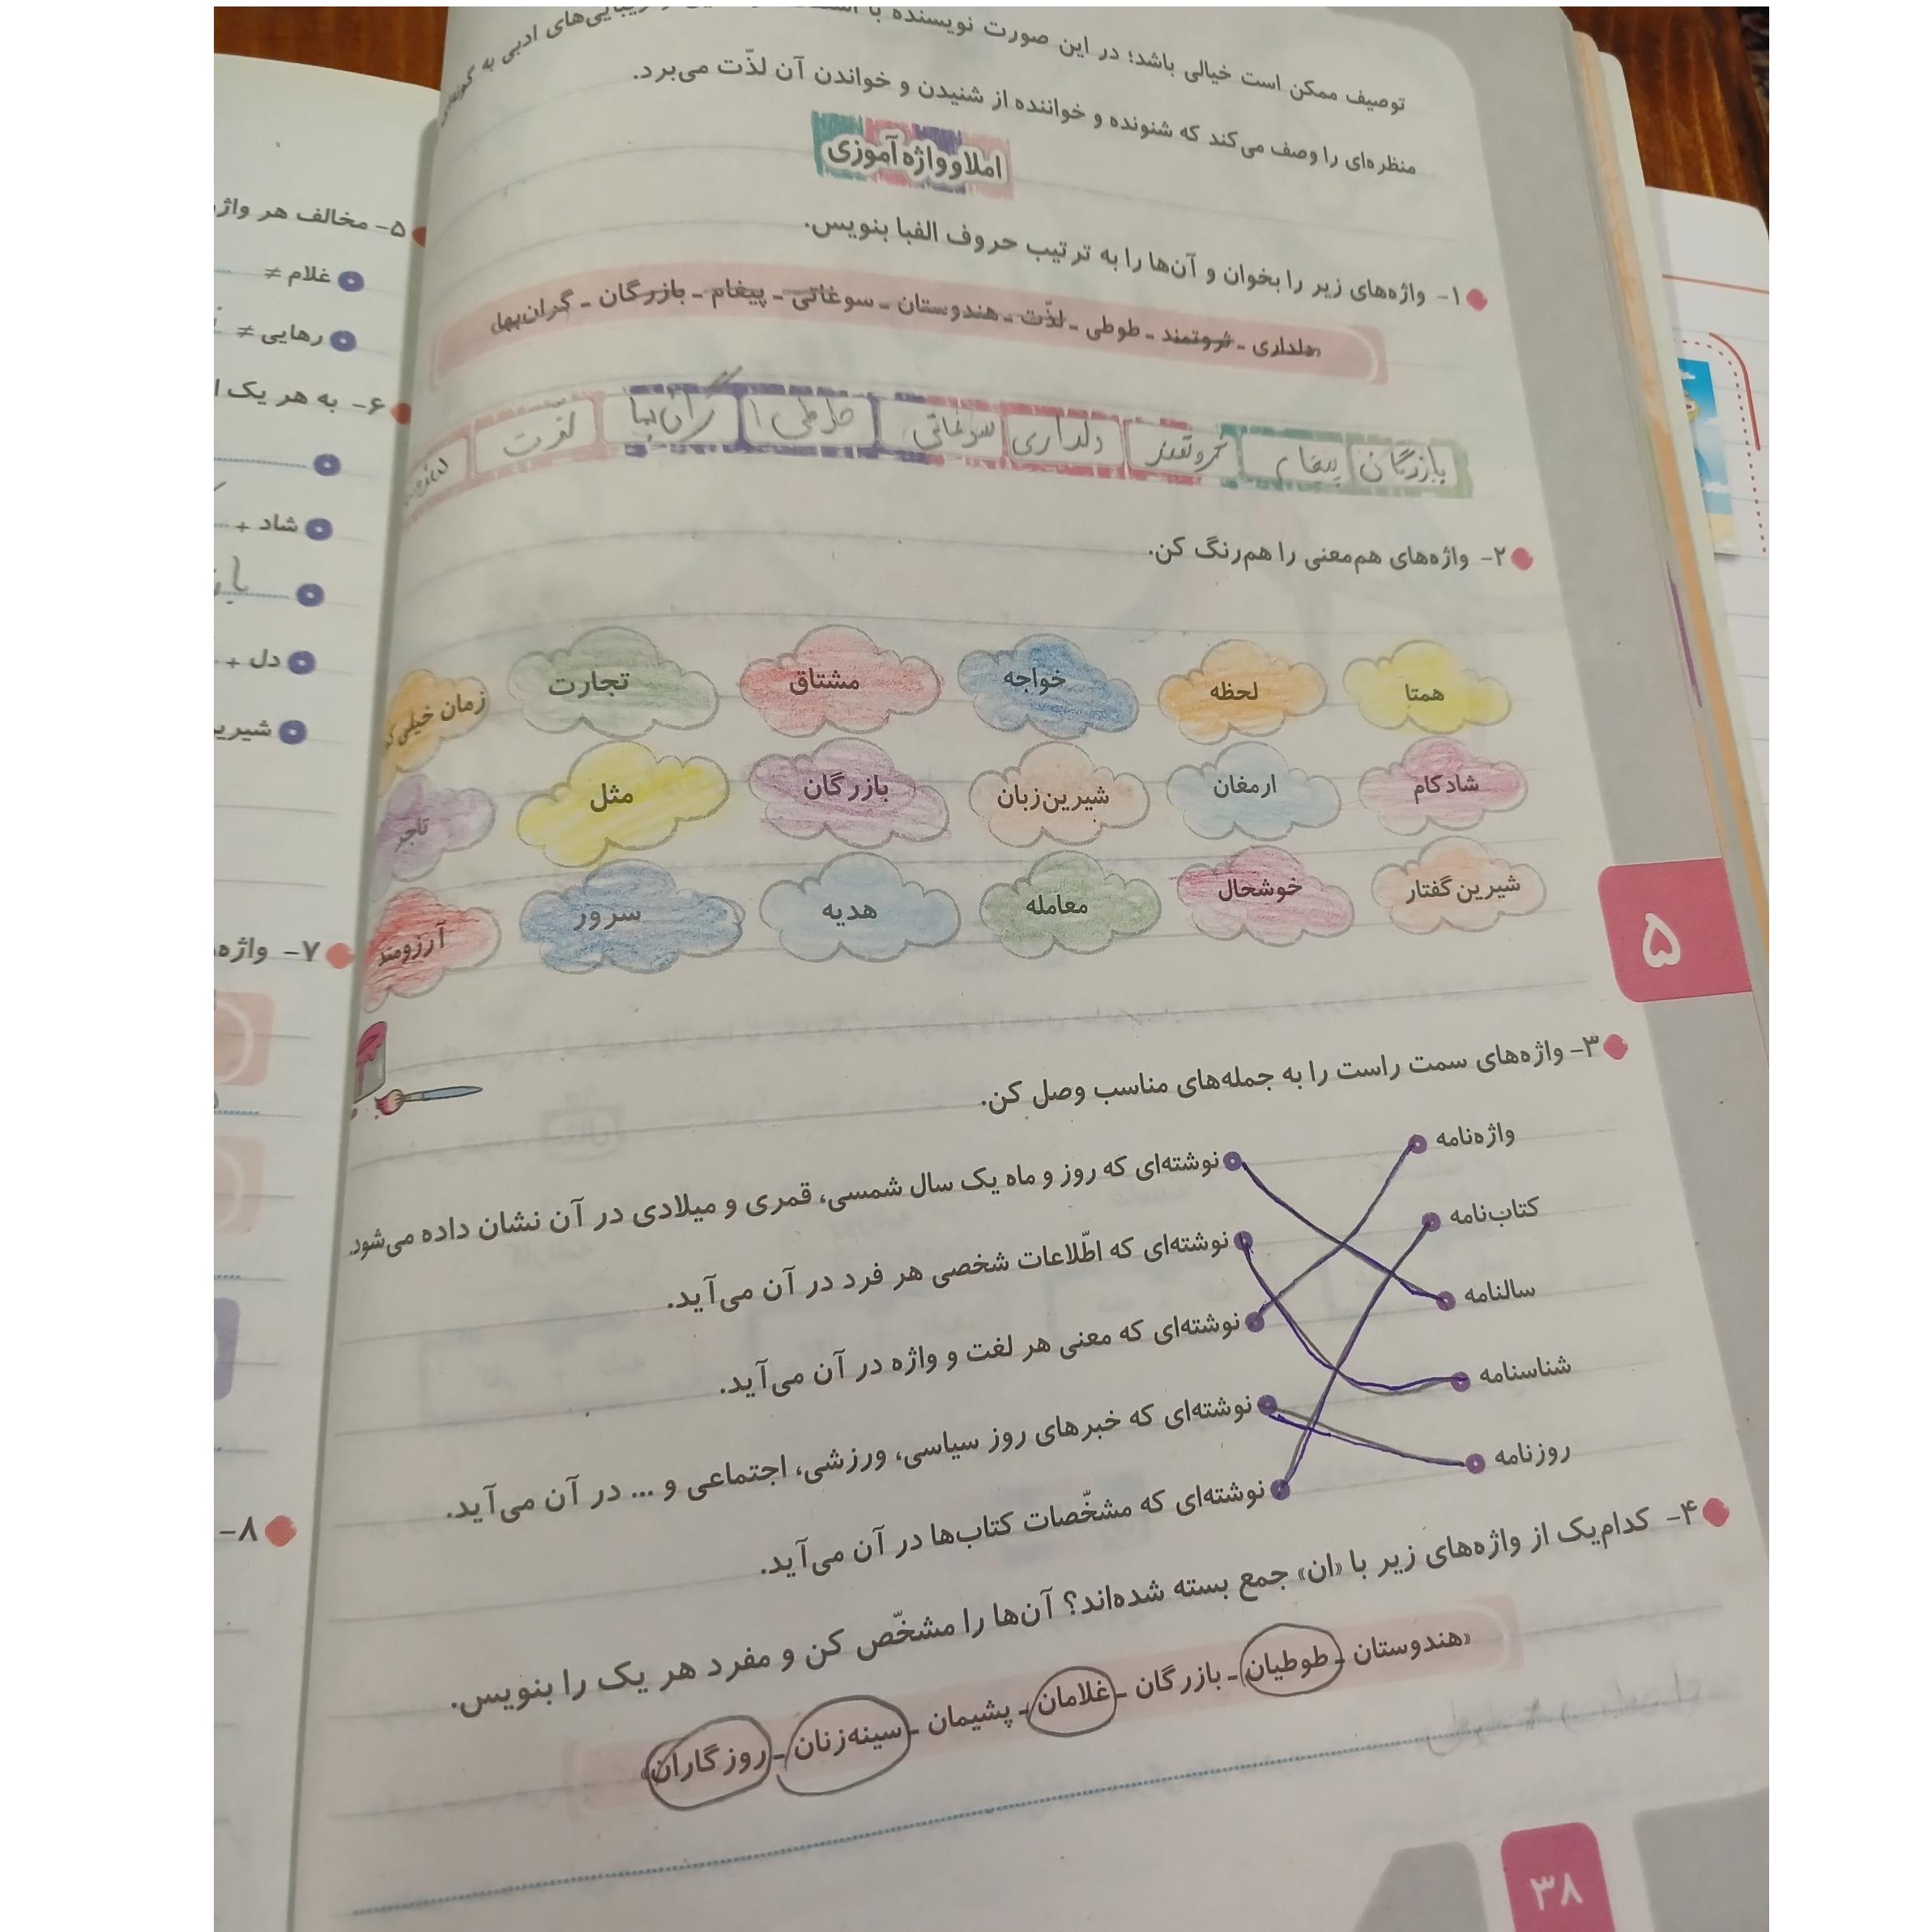 توصیف ممکن است خیالی باشد؛ در این صورت نویسنده با
زیبایی‌های ادبی به گونه‌ای
منظره‌ای را وصف می‌کند که شنونده و خواننده از شنیدن و خواندن آن لذّت می‌برد.
املا و واژه‌آموزی
۱- واژه‌های زیر را بخوان و آن‌ها را به ترتیب حروف الفبا بنویس.
دلداری ـ ثروتمند ـ طوطی ـ لذّت ـ هندوستان ـ سوغاتی ـ پیغام ـ بازرگان ـ گران‌بها
بازرگان پیغام ثروتمند دلداری سوغاتی طوطی گران‌بها لذت
۲- واژه‌های هم‌معنی را هم‌رنگ کن.
همتا لحظه خواجه مشتاق تجارت زمان خیلی
شادکام ارمغان شیرین‌زبان بازرگان مثل تاجر
شیرین‌گفتار خوشحال معامله هدیه سرور آرزومند
۵
۳- واژه‌های سمت راست را به جمله‌های مناسب وصل کن.
واژه‌نامه نوشته‌ای که روز و ماه یک سال شمسی، قمری و میلادی در آن نشان داده می‌شود.
کتاب‌نامه نوشته‌ای که اطّلاعات شخصی هر فرد در آن می‌آید.
سالنامه نوشته‌ای که معنی هر لغت و واژه در آن می‌آید.
شناسنامه نوشته‌ای که خبرهای روز سیاسی، ورزشی، اجتماعی و ... در آن می‌آید.
روزنامه نوشته‌ای که مشخّصات کتاب‌ها در آن می‌آید.
۴- کدام‌یک از واژه‌های زیر با «ان» جمع بسته شده‌اند؟ آن‌ها را مشخّص کن و مفرد هر یک را بنویس.
«هندوستان ـ طوطیان ـ بازرگان ـ غلامان ـ پشیمان ـ سینه‌زنان ـ روزگاران»
۳۸
۵- مخالف هر
غلام ≠
رهایی ≠
۶- به هر یک
شاد +
دل +
۷-
۸-